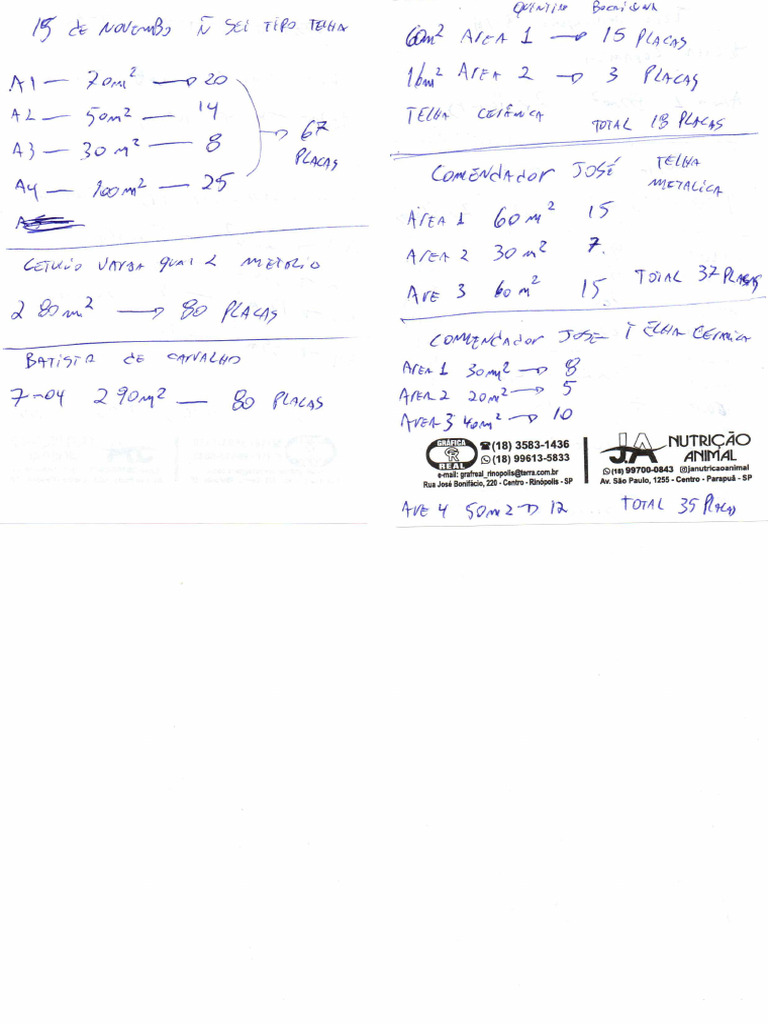 15 de NOVEMBRO Ñ SEI TIPO TELHA
A1 — 70m² → 20
A2 — 50m² — 14
A3 — 30m² — 8
A4 — 100m² — 25
→ 67 PLACAS
280m² → 80 PLACAS
BATISTA de CARVALHO
7-04 290m² — 80 PLACAS
QUINTINO BOCAIUVA
60m² AREA 1 → 15 PLACAS
16m² AREA 2 → 3 PLACAS
TELHA CERÂMICA TOTAL 18 PLACAS
COMENDADOR JOSÉ TELHA METALICA
AREA 1 60m² 15
AREA 2 30m² 7.
ARE 3 60m² 15 TOTAL 37 PLACAS
COMENDADOR JOSE TELHA CERMICA
AREA 1 30m² → 8
AREA 2 20m² → 5
AREA 3 40m² → 10
GRÁFICA REAL
(18) 3583-1436
(18) 99613-5833
e-mail: grafreal_rinopolis@terra.com.br
Rua José Bonifácio, 220 - Centro - Rinópolis - SP
J.A NUTRIÇÃO ANIMAL
(18) 99700-0843 @janutricaoanimal
Av. São Paulo, 1255 - Centro - Parapuã - SP
ARE 4 50m2 → 12 TOTAL 35 PLACAS